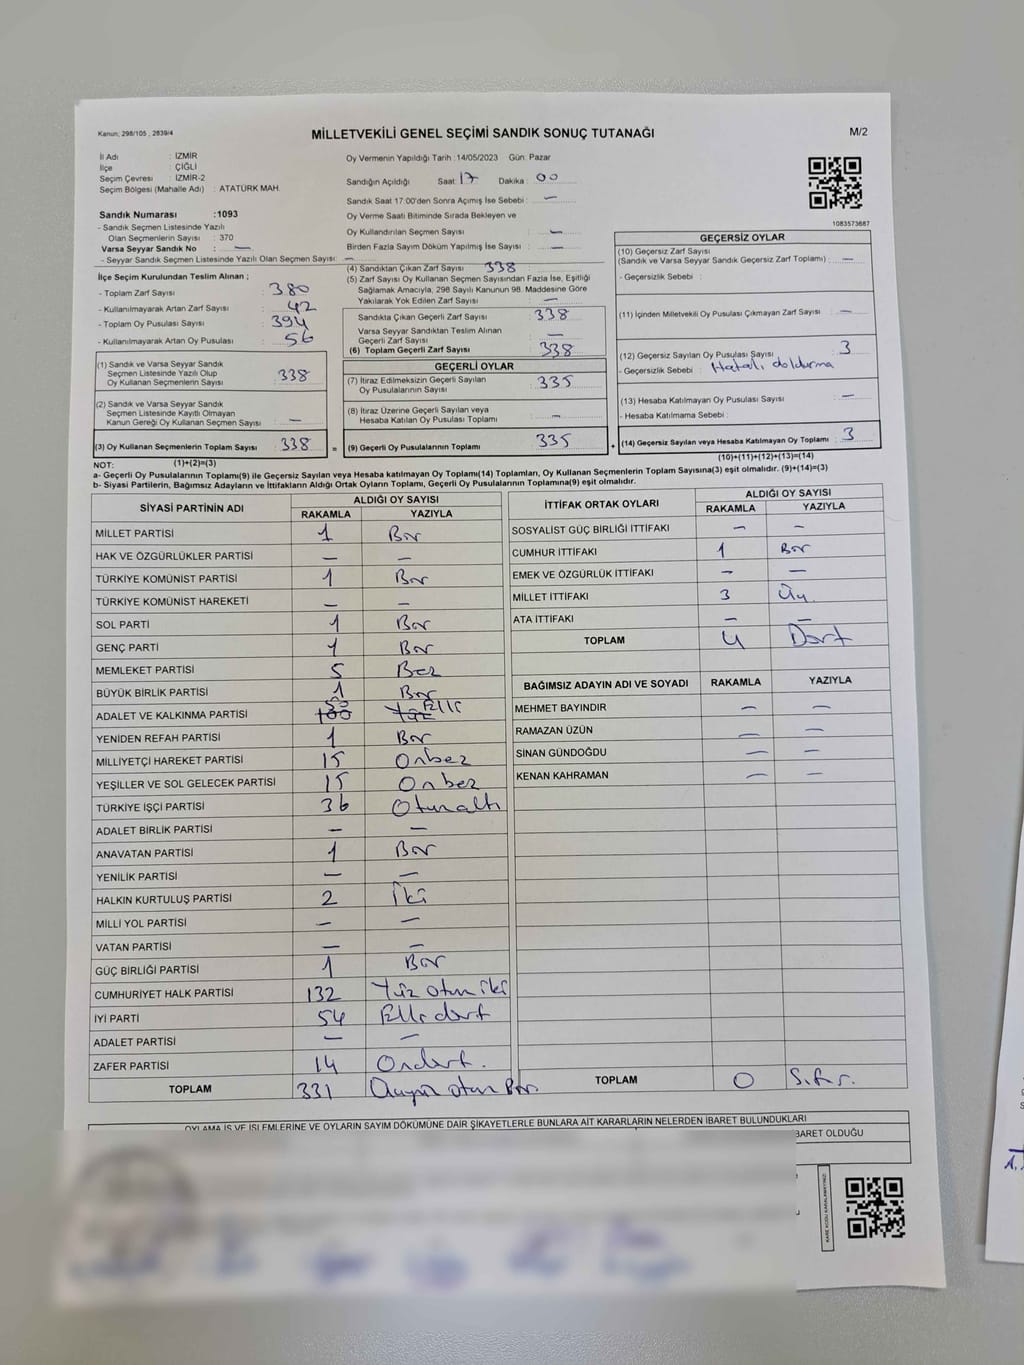 Kanun; 298/105 , 2839/4
MİLLETVEKİLİ GENEL SEÇİMİ SANDIK SONUÇ TUTANAĞI
M/2
İl Adı : İZMİR
İlçe : ÇİĞLİ
Seçim Çevresi : İZMİR-2
Seçim Bölgesi (Mahalle Adı) : ATATÜRK MAH.
Oy Vermenin Yapıldığı Tarih :14/05/2023 Gün: Pazar
Sandığın Açıldığı Saat: 17 Dakika : 00
Sandık Saat 17:00'den Sonra Açımış İse Sebebi : —
Oy Verme Saati Bitiminde Sırada Bekleyen ve
Oy Kullandırılan Seçmen Sayısı : —
Birden Fazla Sayım Döküm Yapılmış İse Sayısı : —
1083573687
Sandık Numarası :1093
- Sandık Seçmen Listesinde Yazılı
Olan Seçmenlerin Sayısı : 370
Varsa Seyyar Sandık No : —
- Seyyar Sandık Seçmen Listesinde Yazılı Olan Seçmen Sayısı: —
İlçe Seçim Kurulundan Teslim Alınan ;
- Toplam Zarf Sayısı : 380
- Kullanılmayarak Artan Zarf Sayısı : 42
- Toplam Oy Pusulası Sayısı : 394
- Kullanılmayarak Artan Oy Pusulası : 56
(1) Sandık ve Varsa Seyyar Sandık
Seçmen Listesinde Yazılı Olup
Oy Kullanan Seçmenlerin Sayısı : 338
(2) Sandık ve Varsa Seyyar Sandık
Seçmen Listesinde Kayıtlı Olmayan
Kanun Gereği Oy Kullanan Seçmen Sayısı : —
(3) Oy Kullanan Seçmenlerin Toplam Sayısı : 338
(1)+(2)=(3)
(4) Sandıktan Çıkan Zarf Sayısı : 338
(5) Zarf Sayısı Oy Kullanan Seçmen Sayısından Fazla İse, Eşitliği
Sağlamak Amacıyla, 298 Sayılı Kanunun 98. Maddesine Göre
Yakılarak Yok Edilen Zarf Sayısı : —
Sandıkta Çıkan Geçerli Zarf Sayısı : 338
Varsa Seyyar Sandıktan Teslim Alınan
Geçerli Zarf Sayısı : —
(6) Toplam Geçerli Zarf Sayısı : 338
GEÇERLİ OYLAR
(7) İtiraz Edilmeksizin Geçerli Sayılan
Oy Pusulalarının Sayısı : 335
(8) İtiraz Üzerine Geçerli Sayılan veya
Hesaba Katılan Oy Pusulası Toplamı : —
= (9) Geçerli Oy Pusulalarının Toplamı : 335
GEÇERSİZ OYLAR
(10) Geçersiz Zarf Sayısı
(Sandık ve Varsa Seyyar Sandık Geçersiz Zarf Toplamı) : —
- Geçersizlik Sebebi :
(11) İçinden Milletvekili Oy Pusulası Çıkmayan Zarf Sayısı : —
(12) Geçersiz Sayılan Oy Pusulası Sayısı : 3
- Geçersizlik Sebebi : Hatalı doldurma
(13) Hesaba Katılmayan Oy Pusulası Sayısı : —
- Hesaba Katılmama Sebebi :
+ (14) Geçersiz Sayılan veya Hesaba Katılmayan Oy Toplamı : 3
(10)+(11)+(12)+(13)=(14)
NOT:
a- Geçerli Oy Pusulalarının Toplamı(9) ile Geçersiz Sayılan veya Hesaba katılmayan Oy Toplamı(14) Toplamları, Oy Kullanan Seçmenlerin Toplam Sayısına(3) eşit olmalıdır. (9)+(14)=(3)
b- Siyasi Partilerin, Bağımsız Adayların ve İttifakların Aldığı Ortak Oyların Toplamı, Geçerli Oy Pusulalarının Toplamına(9) eşit olmalıdır.
SİYASİ PARTİNİN ADI ALDIĞI OY SAYISI
RAKAMLA YAZIYLA
MİLLET PARTİSİ 1 Bir
HAK VE ÖZGÜRLÜKLER PARTİSİ — —
TÜRKİYE KOMÜNİST PARTİSİ 1 Bir
TÜRKİYE KOMÜNİST HAREKETİ — —
SOL PARTİ 1 Bir
GENÇ PARTİ 1 Bir
MEMLEKET PARTİSİ 5 Beş
BÜYÜK BİRLİK PARTİSİ 1 Bir
ADALET VE KALKINMA PARTİSİ 50 100 Yüz Elli
YENİDEN REFAH PARTİSİ 1 Bir
MİLLİYETÇİ HAREKET PARTİSİ 15 Onbeş
YEŞİLLER VE SOL GELECEK PARTİSİ 15 Onbeş
TÜRKİYE İŞÇİ PARTİSİ 36 Otuzaltı
ADALET BİRLİK PARTİSİ — —
ANAVATAN PARTİSİ 1 Bir
YENİLİK PARTİSİ — —
HALKIN KURTULUŞ PARTİSİ 2 İki
MİLLİ YOL PARTİSİ — —
VATAN PARTİSİ — —
GÜÇ BİRLİĞİ PARTİSİ 1 Bir
CUMHURİYET HALK PARTİSİ 132 Yüz otuz iki
İYİ PARTİ 54 Elli dört
ADALET PARTİSİ — —
ZAFER PARTİSİ 14 Ondört.
TOPLAM 331 Üçyüz otuz Bir.
İTTİFAK ORTAK OYLARI ALDIĞI OY SAYISI
RAKAMLA YAZIYLA
SOSYALİST GÜÇ BİRLİĞİ İTTİFAKI — —
CUMHUR İTTİFAKI 1 Bir
EMEK VE ÖZGÜRLÜK İTTİFAKI — —
MİLLET İTTİFAKI 3 Üç
ATA İTTİFAKI — —
TOPLAM 4 Dört
BAĞIMSIZ ADAYIN ADI VE SOYADI RAKAMLA YAZIYLA
MEHMET BAYINDIR — —
RAMAZAN ÜZÜN — —
SİNAN GÜNDOĞDU — —
KENAN KAHRAMAN — —
TOPLAM 0 Sıfır.
OYLAMA İŞ VE İŞLEMLERİNE VE OYLARIN SAYIM DÖKÜMÜNE DAİR ŞİKAYETLERLE BUNLARA AİT KARARLARIN NELERDEN İBARET BULUNDUKLARI
BARET OLDUĞU
KARE KODU KARALAMAYINIZ!